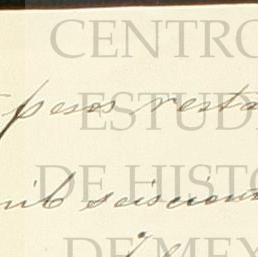 CENTRO
pesos resta
ESTUD
DE HISTO
mil seiscien
DE MEX